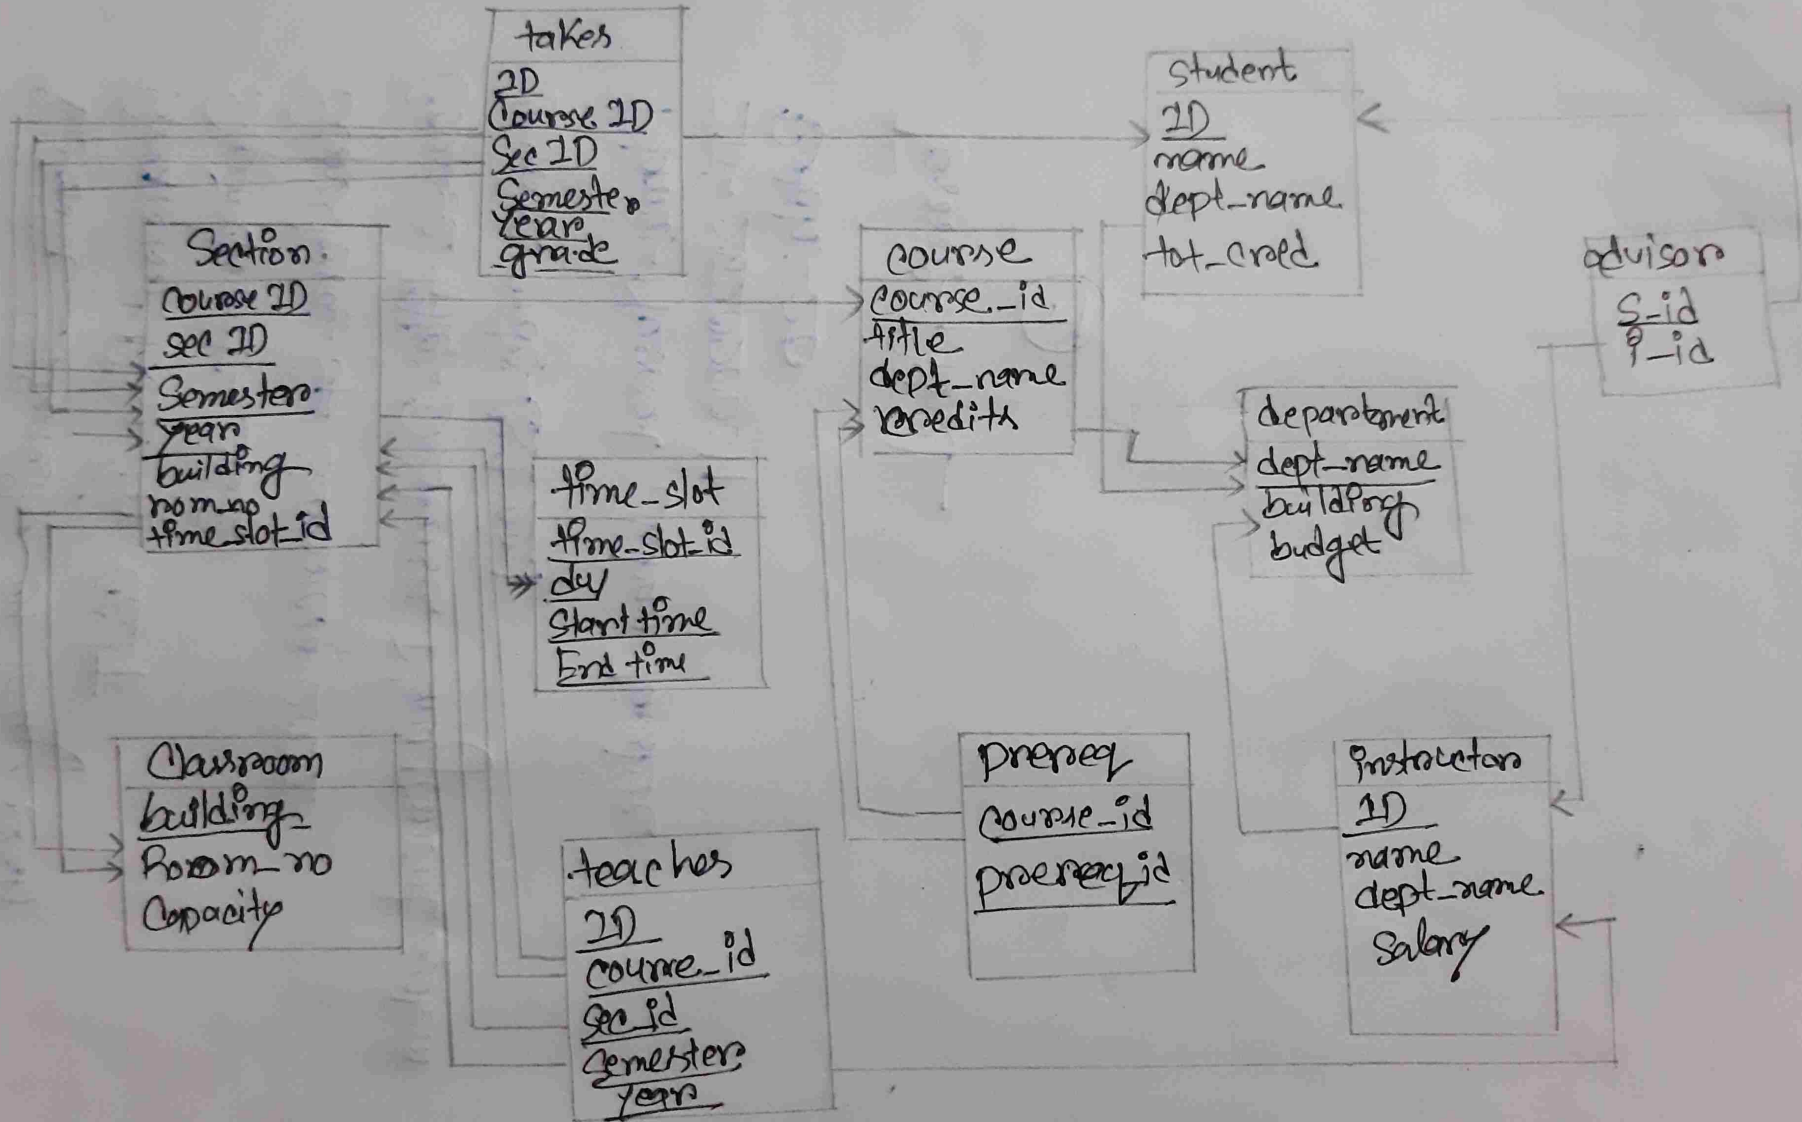 takes
ID
Course ID
Sec ID
Semester
Year
grade
student
ID
name
dept_name
tot_cred
Section
course ID
sec ID
Semester
year
building
room_no
time_slot_id
course
course_id
title
dept_name
credits
advisor
S_id
i_id
department
dept_name
building
budget
time_slot
time_slot_id
day
Start time
End time
Classroom
building
Room_no
Capacity
teaches
ID
course_id
sec_id
semester
year
prereq
course_id
prereq_id
instructor
ID
name
dept_name
salary